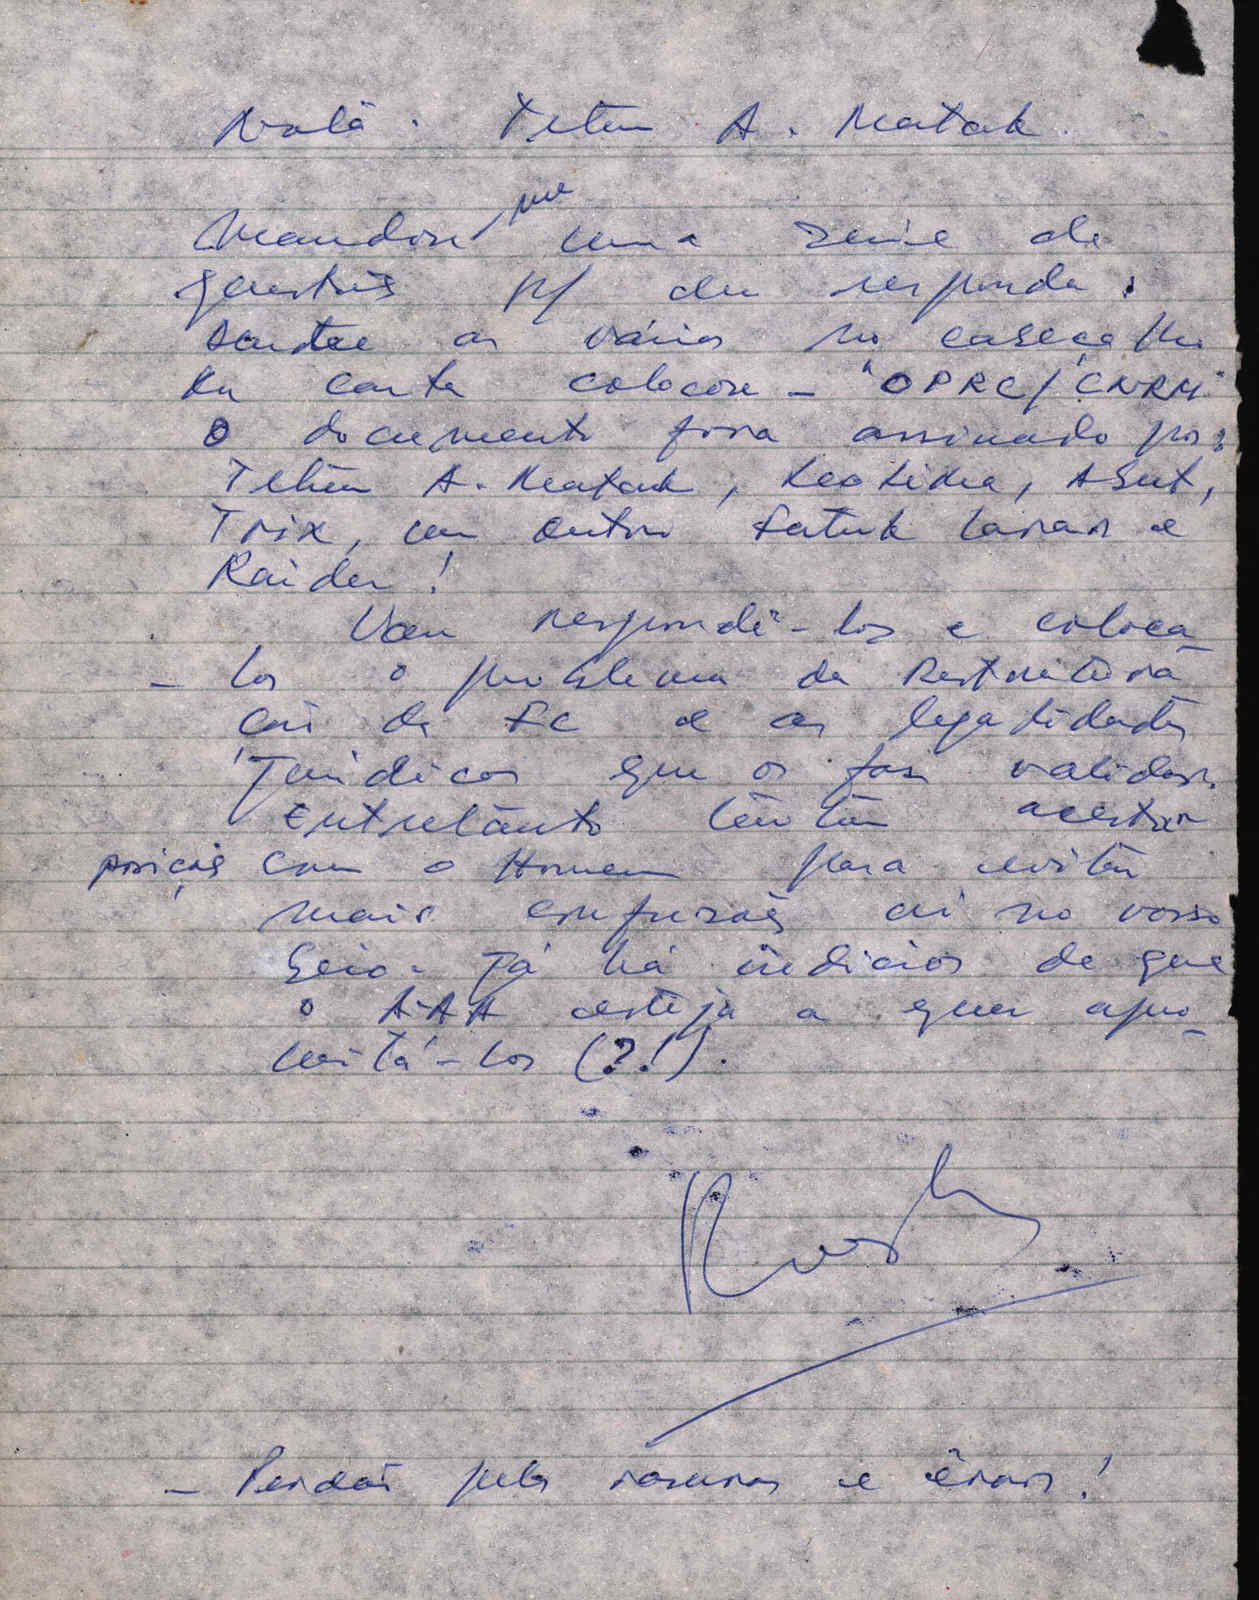 Nota: Tetum A. Matak
Mandou me uma serie de
questões p/ eu responda:
dentre as várias no cabeçalho
da carta colocou - "OPRC/CNRM"
O documento fora assinado por:
Tetum A. Matak, Keotike, Asut,
Trix, um outro Fatuk Laran e
Raider!
Vou respondê-los e coloca
- los o problema da Restrutura
ção da FC e as legatidades
juridicos que os fou validar.
Entretanto tentem acertar
posições com o Homem para evitar
mais confusões aí no vosso
seio. Já há indicios de que
o AAA esteja a quer apro-
veitá-los (?!).
- Perdão pelas rasuras e êrros!